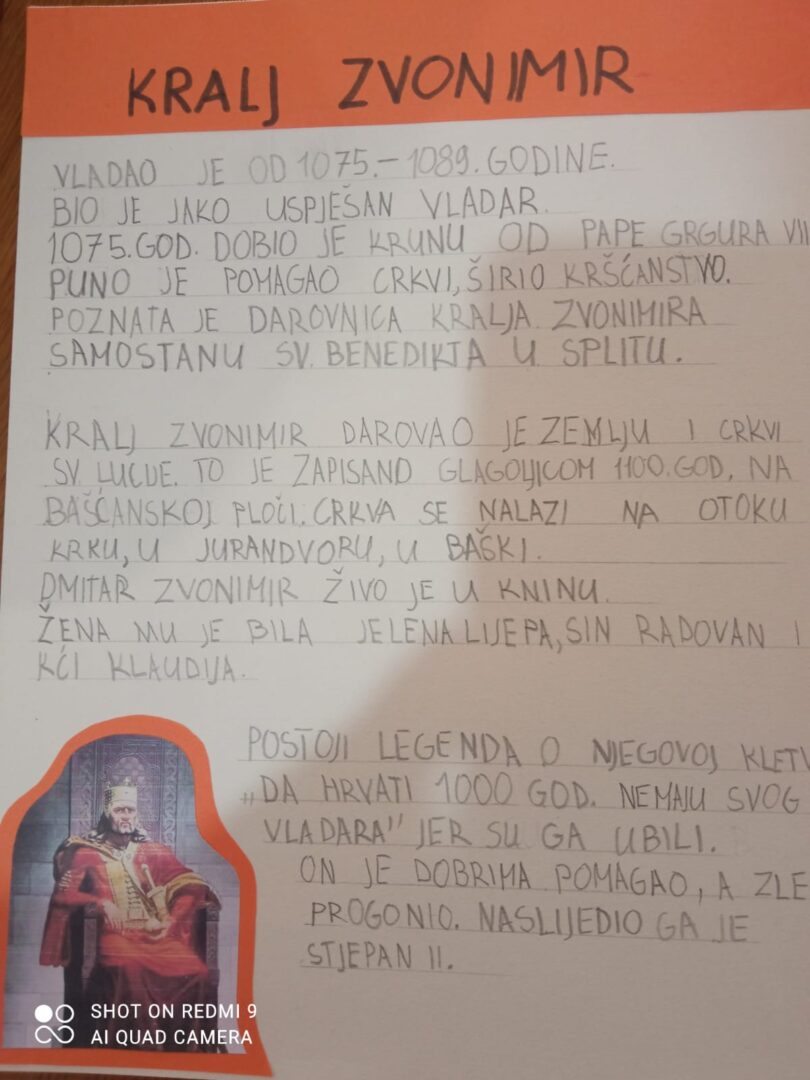 KRALJ ZVONIMIR
VLADAO JE OD 1075.-1089. GODINE.
BIO JE JAKO USPJEŠAN VLADAR.
1075. GOD. DOBIO JE KRUNU OD PAPE GRGURA VII
PUNO JE POMAGAO CRKVI, ŠIRIO KRŠĆANSTVO.
POZNATA JE DAROVNICA KRALJA ZVONIMIRA
SAMOSTANU SV. BENEDIKTA U SPLITU.
KRALJ ZVONIMIR DAROVAO JE ZEMLJU I CRKVI
SV. LUCIJE. TO JE ZAPISANO GLAGOLJICOM 1100. GOD. NA
BAŠĆANSKOJ PLOČI. CRKVA SE NALAZI NA OTOKU
KRKU, U JURANDVORU, U BAŠKI.
DMITAR ZVONIMIR ŽIVO JE U KNINU.
ŽENA MU JE BILA JELENA LIJEPA, SIN RADOVAN I
KĆI KLAUDIJA.
POSTOJI LEGENDA O NJEGOVOJ KLETV
„DA HRVATI 1000 GOD. NEMAJU SVOG
VLADARA" JER SU GA UBILI.
ON JE DOBRIMA POMAGAO, A ZLE
PROGONIO. NASLIJEDIO GA JE
STJEPAN II.
SHOT ON REDMI 9
AI QUAD CAMERA